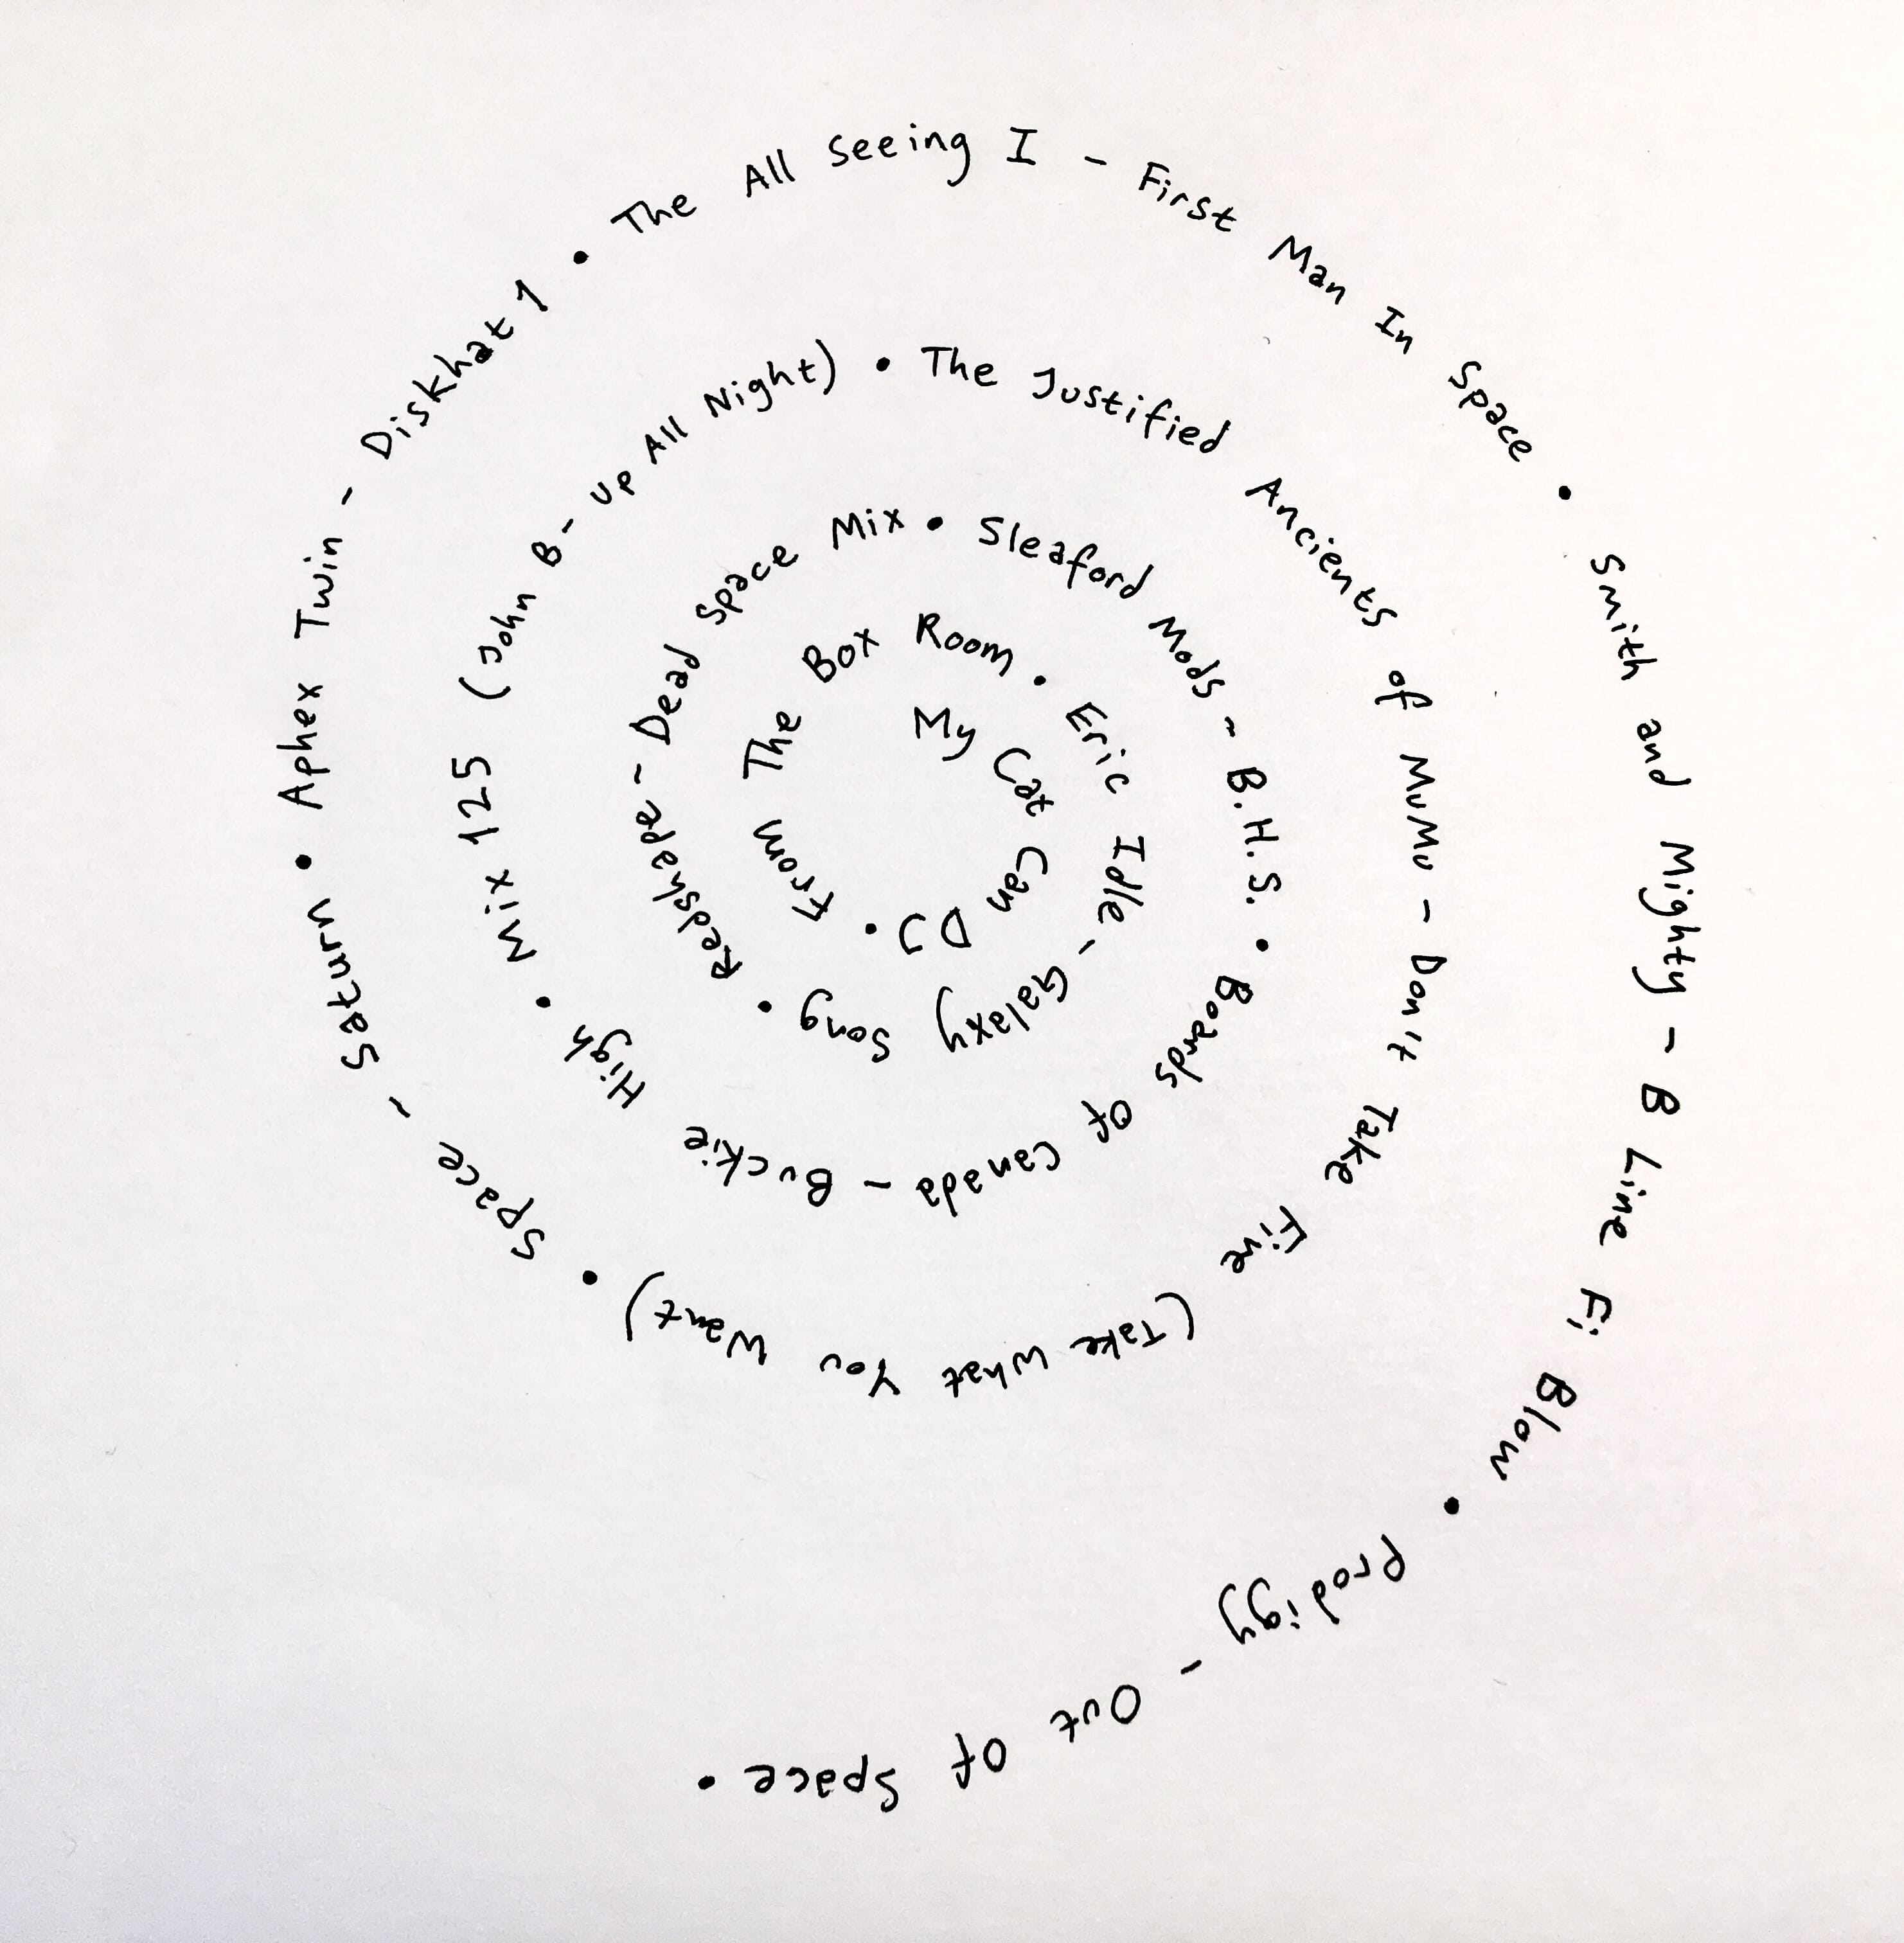 My Cat Can DJ • From The Box Room • Eric Idle - Galaxy Song • Redshape - Dead Space Mix • Sleaford Mods - B.H.S. • Boards Of Canada - Buckie High • Mix 125 (John B - Up All Night) • The Justified Ancients of MuMu - Don't Take Five (Take What You Want) • Space - Saturn • Aphex Twin - Diskhat 1 • The All Seeing I - First Man In Space • Smith and Mighty - B Line Fi Blow • Prodigy - Out Of Space •